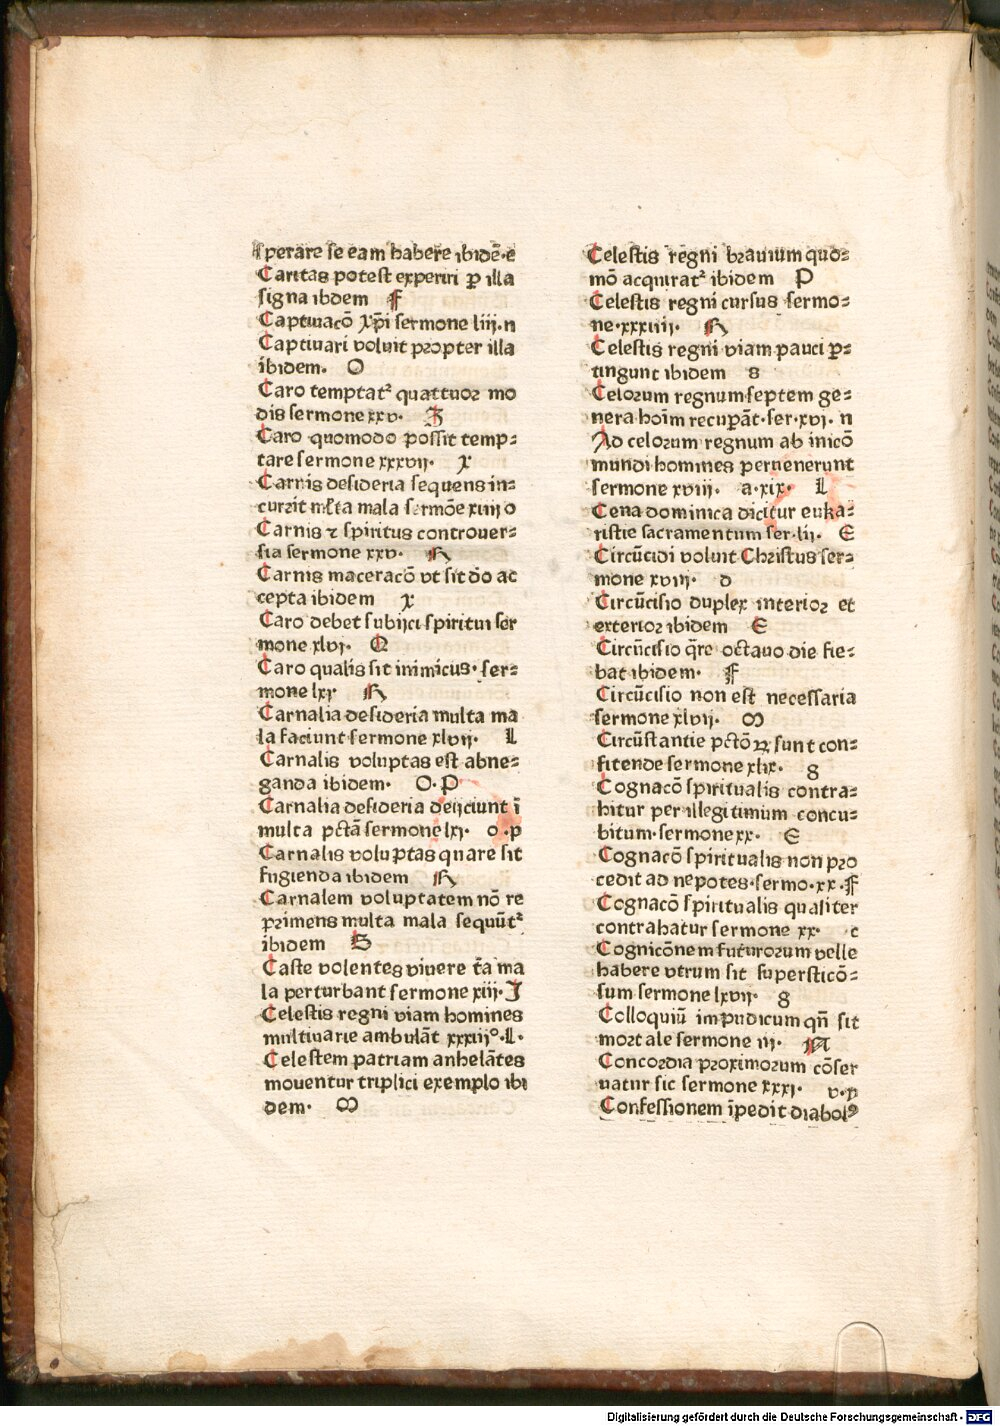 sperare se eam habere ibidē·e
Caritas potest experiri ꝑ illa
signa ibdem F
Captiuacō xp̄i sermone liij.n
Captiuari voluit propter illa
ibidem· O
Caro temptatᷣ quattuor mo
dis sermone xxv· I
Caro quomodo possit temp⸗
tare sermone xxxvij· x
Carnis desideria sequens in⸗
currit ml̄ta mala sermōe xiiij o
Carnis ⁊ spiritus controuer⸗
sia sermone xxv· R
Carnis maceracō vt sit dō ac
cepta ibidem x
Caro debet subijci spiritui ser
mone xlvi· Q
Caro qualis sit inimicus· ser⸗
mone lxi· R
Carnalia desideria multa ma
la faciunt sermone xlvij· L
Carnalis voluptas est abne⸗
ganda ibidem· O·P
Carnalia desideria deijciunt ī
multa pctā sermone lxi· o·p
Carnalis voluptas quare sit
fugienda ibidem R
Carnalem voluptatem nō re
primens multa mala sequūtᷣ
ibidem S
Caste volentes viuere t̄a ma
la perturbant sermone xiij· J
Celestis regni viam homines
multiuarie ambulāt xxxiij°·L·
Celestem patriam anhelātes
mouentur triplici exemplo ibi
dem· M
Celestis regni brauium quo⸗
mō acquiratᷣ ibidem P
Celestis regni cursus sermo⸗
ne·xxxiiij· R
Celestis regni viam pauci ꝑ⸗
tingunt ibidem s
Celorum regnum septem ge⸗
nera hoīm recuꝑāt·ser·xvi· n
Ad celorum regnum ab inicō
mundi homines peruenerunt
sermone xviij· a·xix· L
Cena dominica dicitur euka⸗
ristie sacramentum ser·lij· E
Circūcidi voluit Christus ser⸗
mone xviij· d
Circūcisio duplex interior et
exterior ibidem E
Circūcisio q̄re octauo die fie⸗
bat ibidem· F
Circūcisio non est necessaria
sermone xlvij· M
Circūstantie pctōꝝ sunt con⸗
fitende sermone xlix· g
Cognacō spiritualis contra⸗
hitur per illegitimum concu⸗
bitum·sermone xx· E
Cognacō spiritualis non pro
cedit ad nepotes·sermo·xx·F
Cognacō spiritualis qualiter
contrahatur sermone xx· c
Cognicōnem futurorum velle
habere vtrum sit supersticō⸗
sum sermone lxvij· g
Colloquiū impudicum qn̄ sit
mortale sermone iij· A
Concordia proximorum cōser
uatur sic sermone xxxi· v·x
Confessionem īpedit diabolꝰ
Digitalisierung gefördert durch die Deutsche Forschungsgemeinschaft · DFG